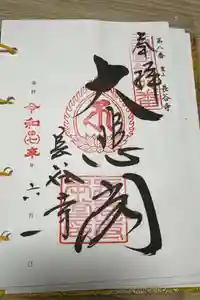 第八番 長谷寺
奉拝
大悲閣
長谷寺
令和四年 六月一日